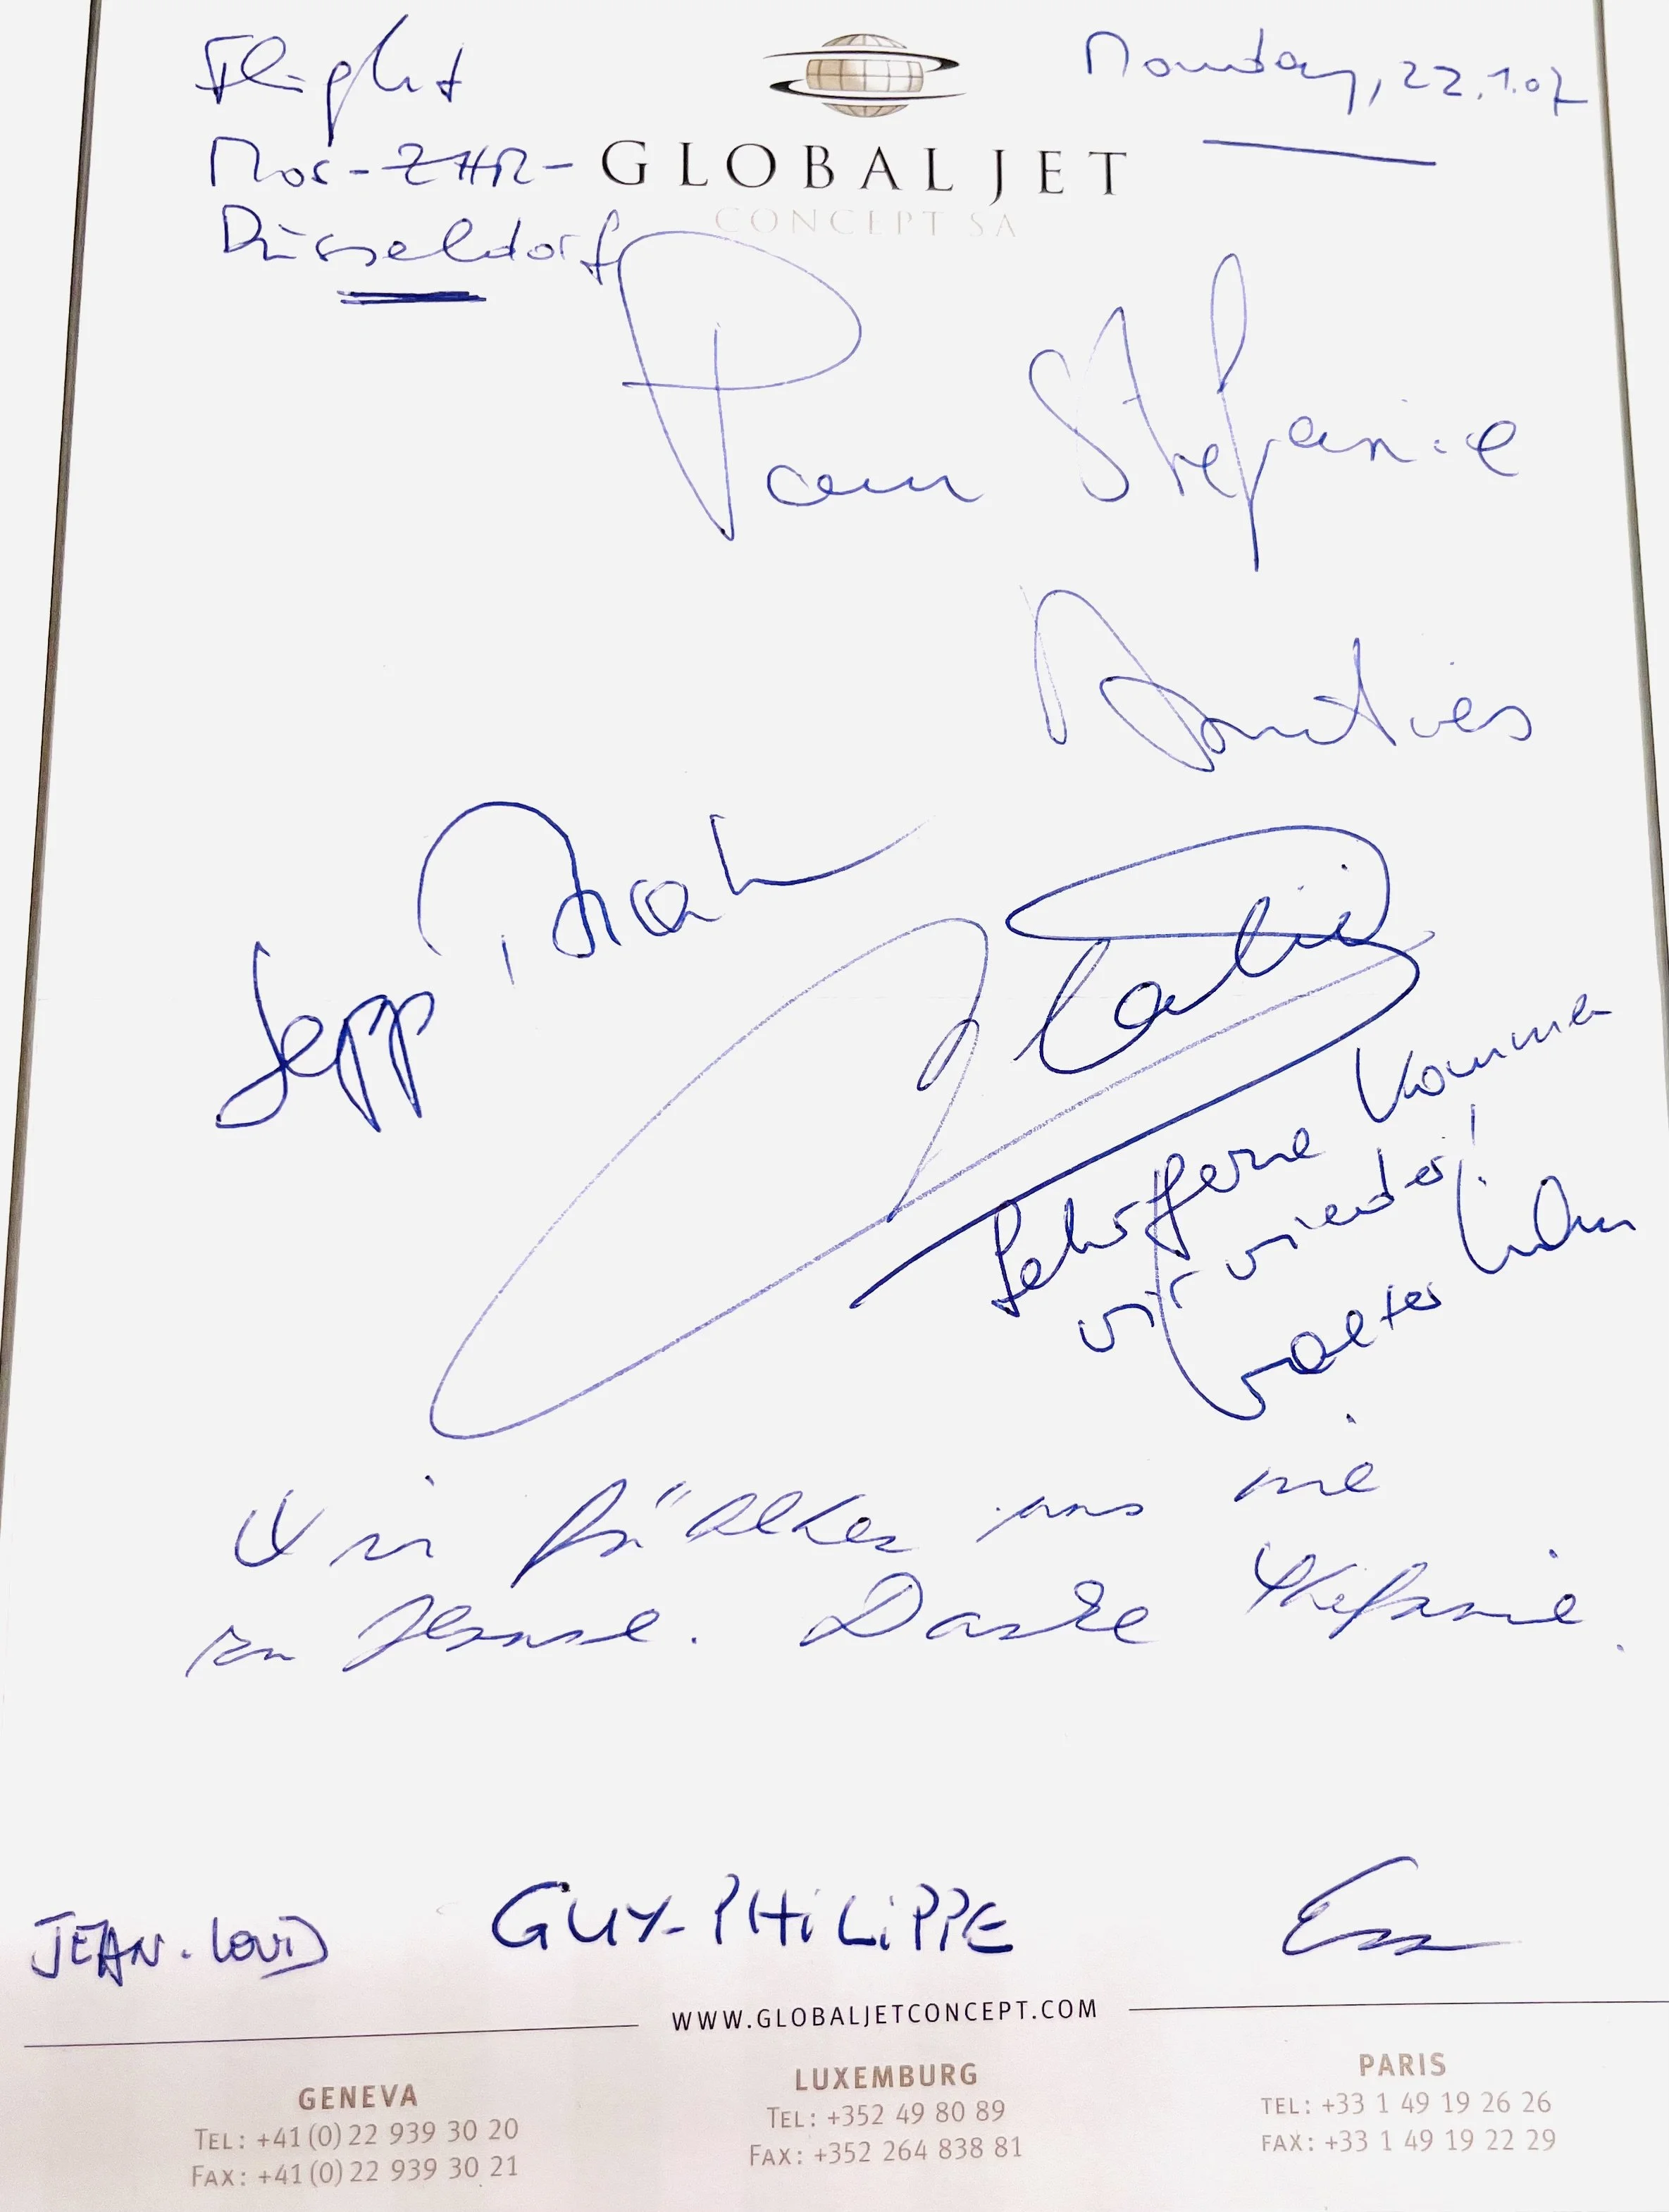 Flight
Monday, 22.1.07
GLOBAL JET
CONCEPT SA
Düsseldorf
Pour Stefanie
Amitiés
Sepp
Sehr gerne kommen
wir wieder!
Walter
Wir fühlten uns wie
zu Hause. Danke Stefanie.
JEAN-LOUIS
GUY-PHILIPPE
WWW.GLOBALJETCONCEPT.COM
GENEVA
TEL: +41(0)22 939 30 20
FAX: +41(0)22 939 30 21
LUXEMBURG
TEL: +352 49 80 89
FAX: +352 264 838 81
PARIS
TEL: +33 1 49 19 26 26
FAX: +33 1 49 19 22 29